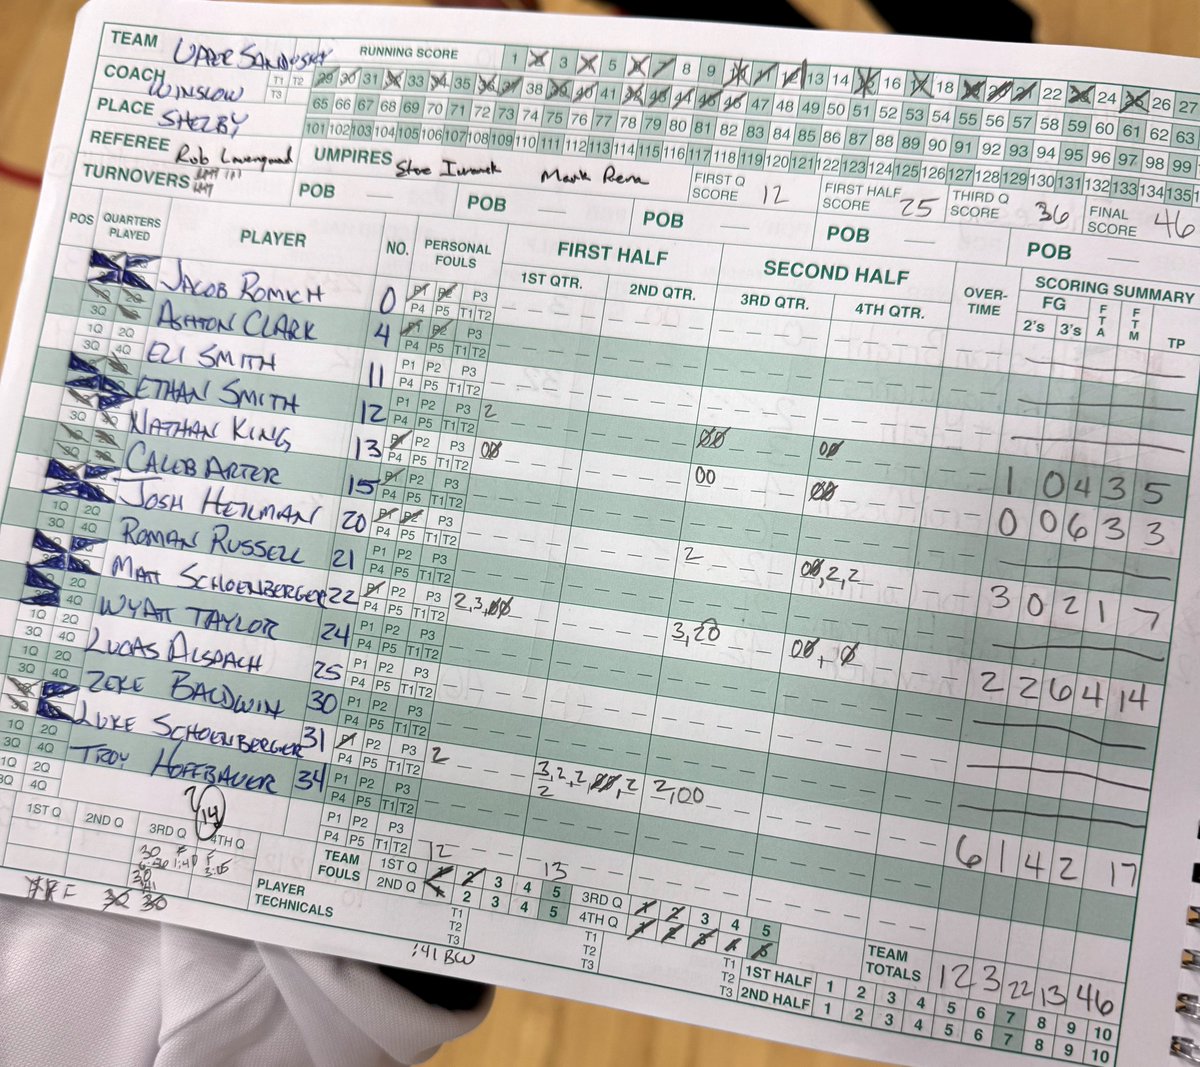 TEAM UPPER SANDUSKY RUNNING SCORE 1 2 3 4 5 6 7 8 9 10 11 12 13 14 15 16 17 18 19 20 21 22 23 24 25 26 27
COACH WINSLOW T1 T2 T3 29 30 31 32 33 34 35 36 37 38 39 40 41 42 43 44 45 46 47 48 49 50 51 52 53 54 55 56 57 58 59 60 61 62 63
PLACE SHELBY 65 66 67 68 69 70 71 72 73 74 75 76 77 78 79 80 81 82 83 84 85 86 87 88 89 90 91 92 93 94 95 96 97 98 99
101 102 103 104 105 106 107 108 109 110 111 112 113 114 115 116 117 118 119 120 121 122 123 124 125 126 127 128 129 130 131 132 133 134 135
REFEREE Rob UMPIRES Steve Mark
FIRST Q SCORE 12 FIRST HALF SCORE 25 THIRD Q SCORE 36 FINAL SCORE 46
TURNOVERS POB POB POB POB POB
POS QUARTERS PLAYED PLAYER NO. PERSONAL FOULS FIRST HALF SECOND HALF OVER-TIME SCORING SUMMARY
1ST QTR. 2ND QTR. 3RD QTR. 4TH QTR. FG 2's 3's FTA FTM TP
JACOB ROMICH 0 P1 P2 P3 P4 P5 T1 T2
ASHTON CLARK 4 P1 P2 P3 P4 P5 T1 T2
1Q 2Q 3Q 4Q ELI SMITH 11 P1 P2 P3 P4 P5 T1 T2
ETHAN SMITH 12 P1 P2 P3 P4 P5 T1 T2 2 00 00 1 0 4 3 5
NATHAN KING 13 P1 P2 P3 P4 P5 T1 T2 00 00 00 0 0 6 3 3
CALEB ARTER 15 P1 P2 P3 P4 P5 T1 T2
JOSH HEILMAN 20 P1 P2 P3 P4 P5 T1 T2 2 00,2,2 3 0 2 1 7
1Q 2Q 3Q 4Q ROMAN RUSSELL 21 P1 P2 P3 P4 P5 T1 T2
MATT SCHOENBERGER 22 P1 P2 P3 P4 P5 T1 T2 2,3,00 3,20 00, 0 2 2 6 4 14
2Q 4Q WYATT TAYLOR 24 P1 P2 P3 P4 P5 T1 T2
1Q 2Q 3Q 4Q LUCAS ALSPACH 25 P1 P2 P3 P4 P5 T1 T2
1Q 2Q 3Q 4Q ZEKE BALDWIN 30 P1 P2 P3 P4 P5 T1 T2
LUKE SCHOENBERGER 31 P1 P2 P3 P4 P5 T1 T2 2 3,2,2,00,2 2 2,00 6 1 4 2 17
1Q 2Q 3Q 4Q TROY HOFFBAUER 34 P1 P2 P3 P4 P5 T1 T2
1Q 2Q 3Q 4Q 14 P1 P2 P3 P4 P5 T1 T2
12 13
1ST Q 2ND Q 3RD Q 4TH Q
TEAM FOULS 1ST Q 1 2 3 4 5 3RD Q 1 2 3 4 5
2ND Q 1 2 3 4 5 4TH Q 1 2 3 4 5
TEAM TOTALS 12 3 22 13 46
30 1:40 3:05
30
30 30
PLAYER TECHNICALS T1 T2 T3 T1 T2 T3 T1 T2 T3
1ST HALF 1 2 3 4 5 6 7 8 9 10
2ND HALF 1 2 3 4 5 6 7 8 9 10
:41 BW